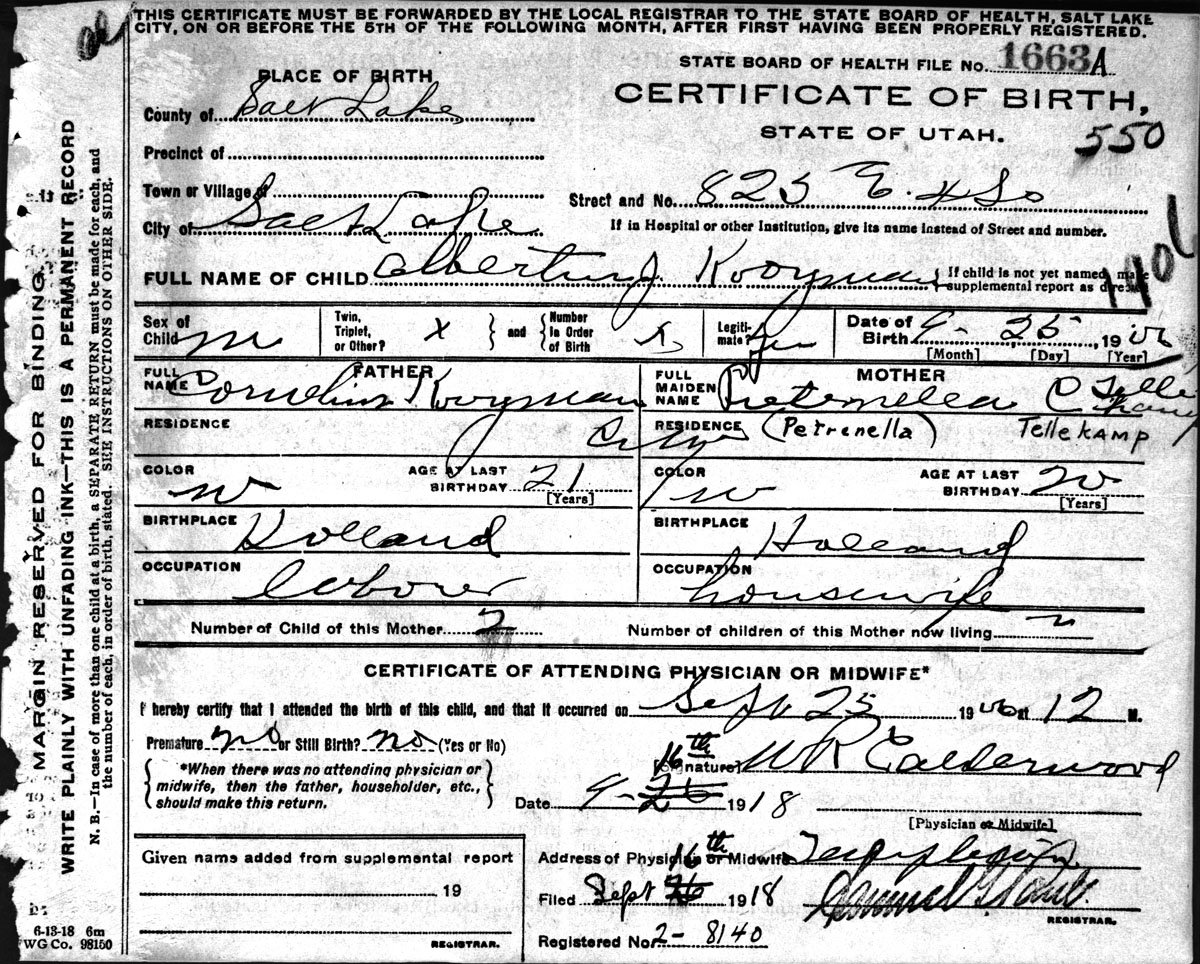 THIS CERTIFICATE MUST BE FORWARDED BY THE LOCAL REGISTRAR TO THE STATE BOARD OF HEALTH, SALT LAKE
CITY, ON OR BEFORE THE 5TH OF THE FOLLOWING MONTH, AFTER FIRST HAVING BEEN PROPERLY REGISTERED.
STATE BOARD OF HEALTH FILE No. 1663A
PLACE OF BIRTH
CERTIFICATE OF BIRTH,
County of Salt Lake
STATE OF UTAH.
550
Precinct of
Town or Village of
Street and No. 825 E. 4 So
City of Salt Lake
If in Hospital or other Institution, give its name instead of Street and number.
FULL NAME OF CHILD Albertus J Kooyman { If child is not yet named, make
supplemental report as directed
Sex of Child m Twin, Triplet, or Other? X } and { Number in Order of Birth Legiti-mate? yes Date of Birth 9 - 25, 1906
[Month] [Day] [Year]
FATHER
MOTHER
FULL NAME Cornelius Kooyman
FULL MAIDEN NAME C Telle
RESIDENCE City
RESIDENCE (Petrenella) TelleKAMP
COLOR w AGE AT LAST BIRTHDAY 21 [Years]
COLOR w AGE AT LAST BIRTHDAY 20 [Years]
BIRTHPLACE Holland
BIRTHPLACE Holland
OCCUPATION labour
OCCUPATION housewife
Number of Child of this Mother 2 Number of children of this Mother now living 2
CERTIFICATE OF ATTENDING PHYSICIAN OR MIDWIFE*
I hereby certify that I attended the birth of this child, and that it occurred on Sept 25 1906 at 12 M.
Premature no or Still Birth? no (Yes or No)
[Signature] W R Calderwood
*When there was no attending physician or
midwife, then the father, householder, etc.,
should make this return.
Date 9 - 26 16th 1918
[Physician or Midwife]
Given name added from supplemental report
Address of Physician or Midwife
19
Filed Sept 26 16th 1918 Samuel G Paul
REGISTRAR.
REGISTRAR.
Registered No. 2- 8140
MARGIN RESERVED FOR BINDING.
WRITE PLAINLY WITH UNFADING INK—THIS IS A PERMANENT RECORD
N. B.—In case of more than one child at a birth, a SEPARATE RETURN must be made for each, and
the number of each, in order of birth, stated. SEE INSTRUCTIONS ON OTHER SIDE.
6-13-18 6m
WG Co. 98150